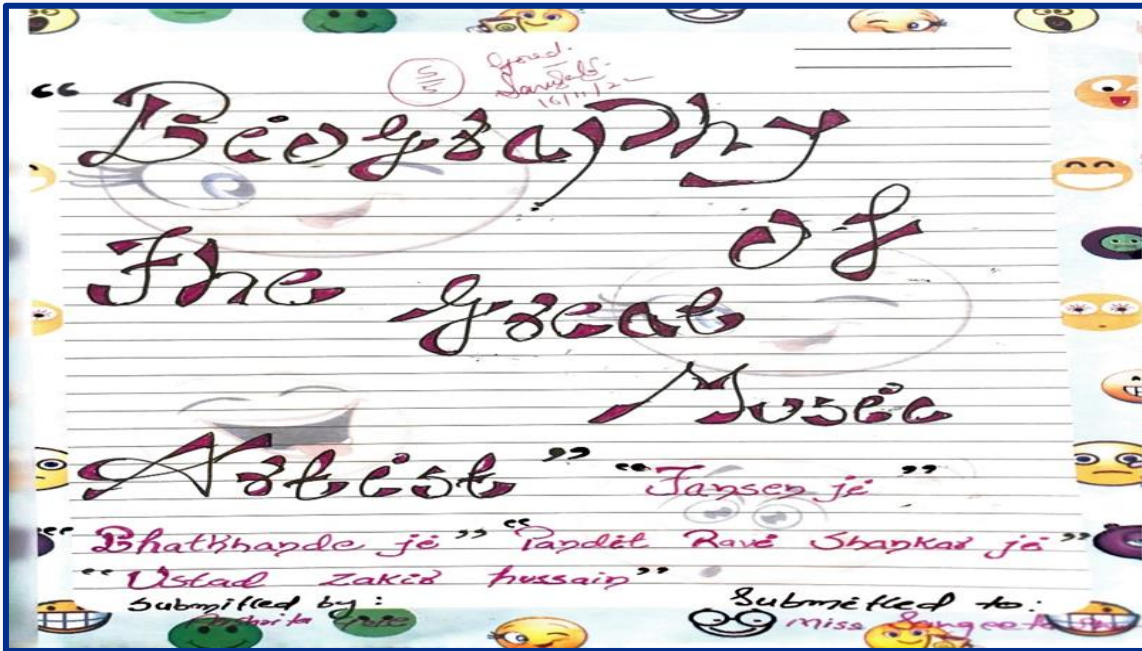 5/5 Good.
16/11/2
“Biography
of
The
great
Music
Artist” “Tansen ji”
“Bhatkhande ji” “Pandit Ravi Shankar ji”
“Ustad Zakir hussain”
Submitted by: Submitted to:
Miss Sangeeta